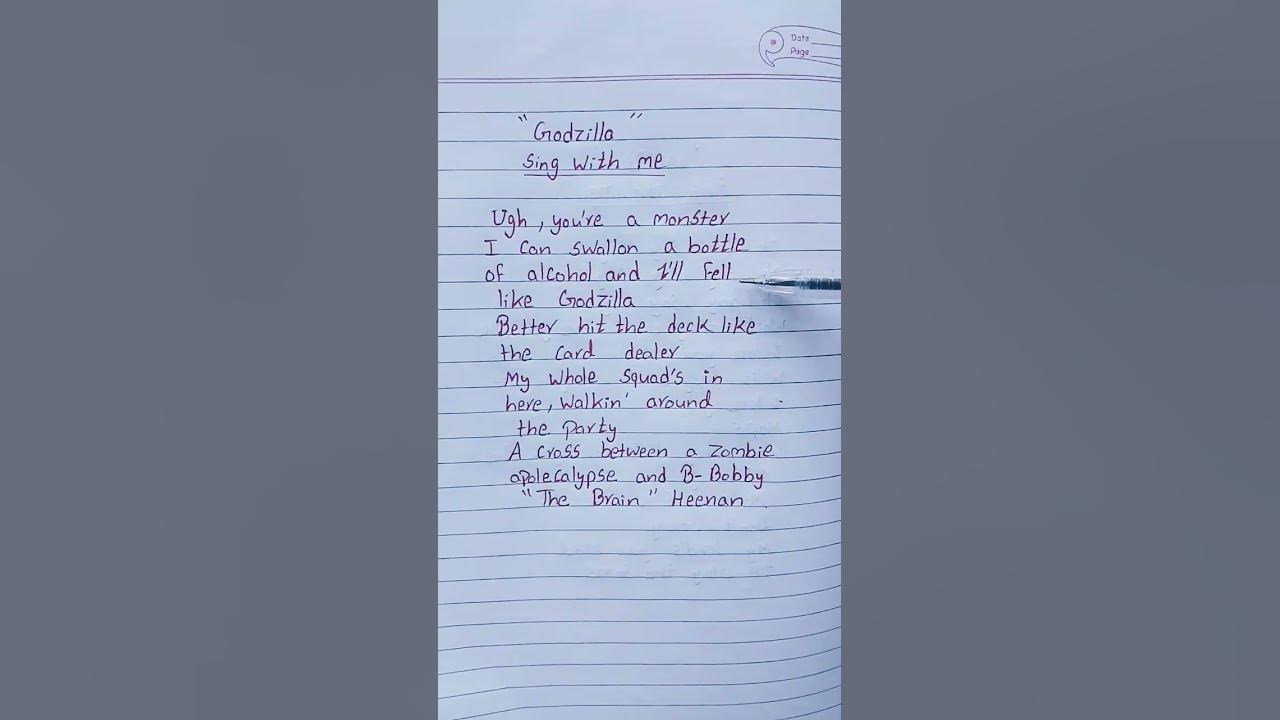 Date
Page
"Godzilla"
Sing With me
Ugh, you're a monster
I can swallon a bottle
of alcohol and I'll Fell
like Godzilla
Better hit the deck like
the card dealer
My whole squad's in
here, Walkin' around
the party
A cross between a Zombie
apolecalypse and B-Bobby
"The Brain" Heenan